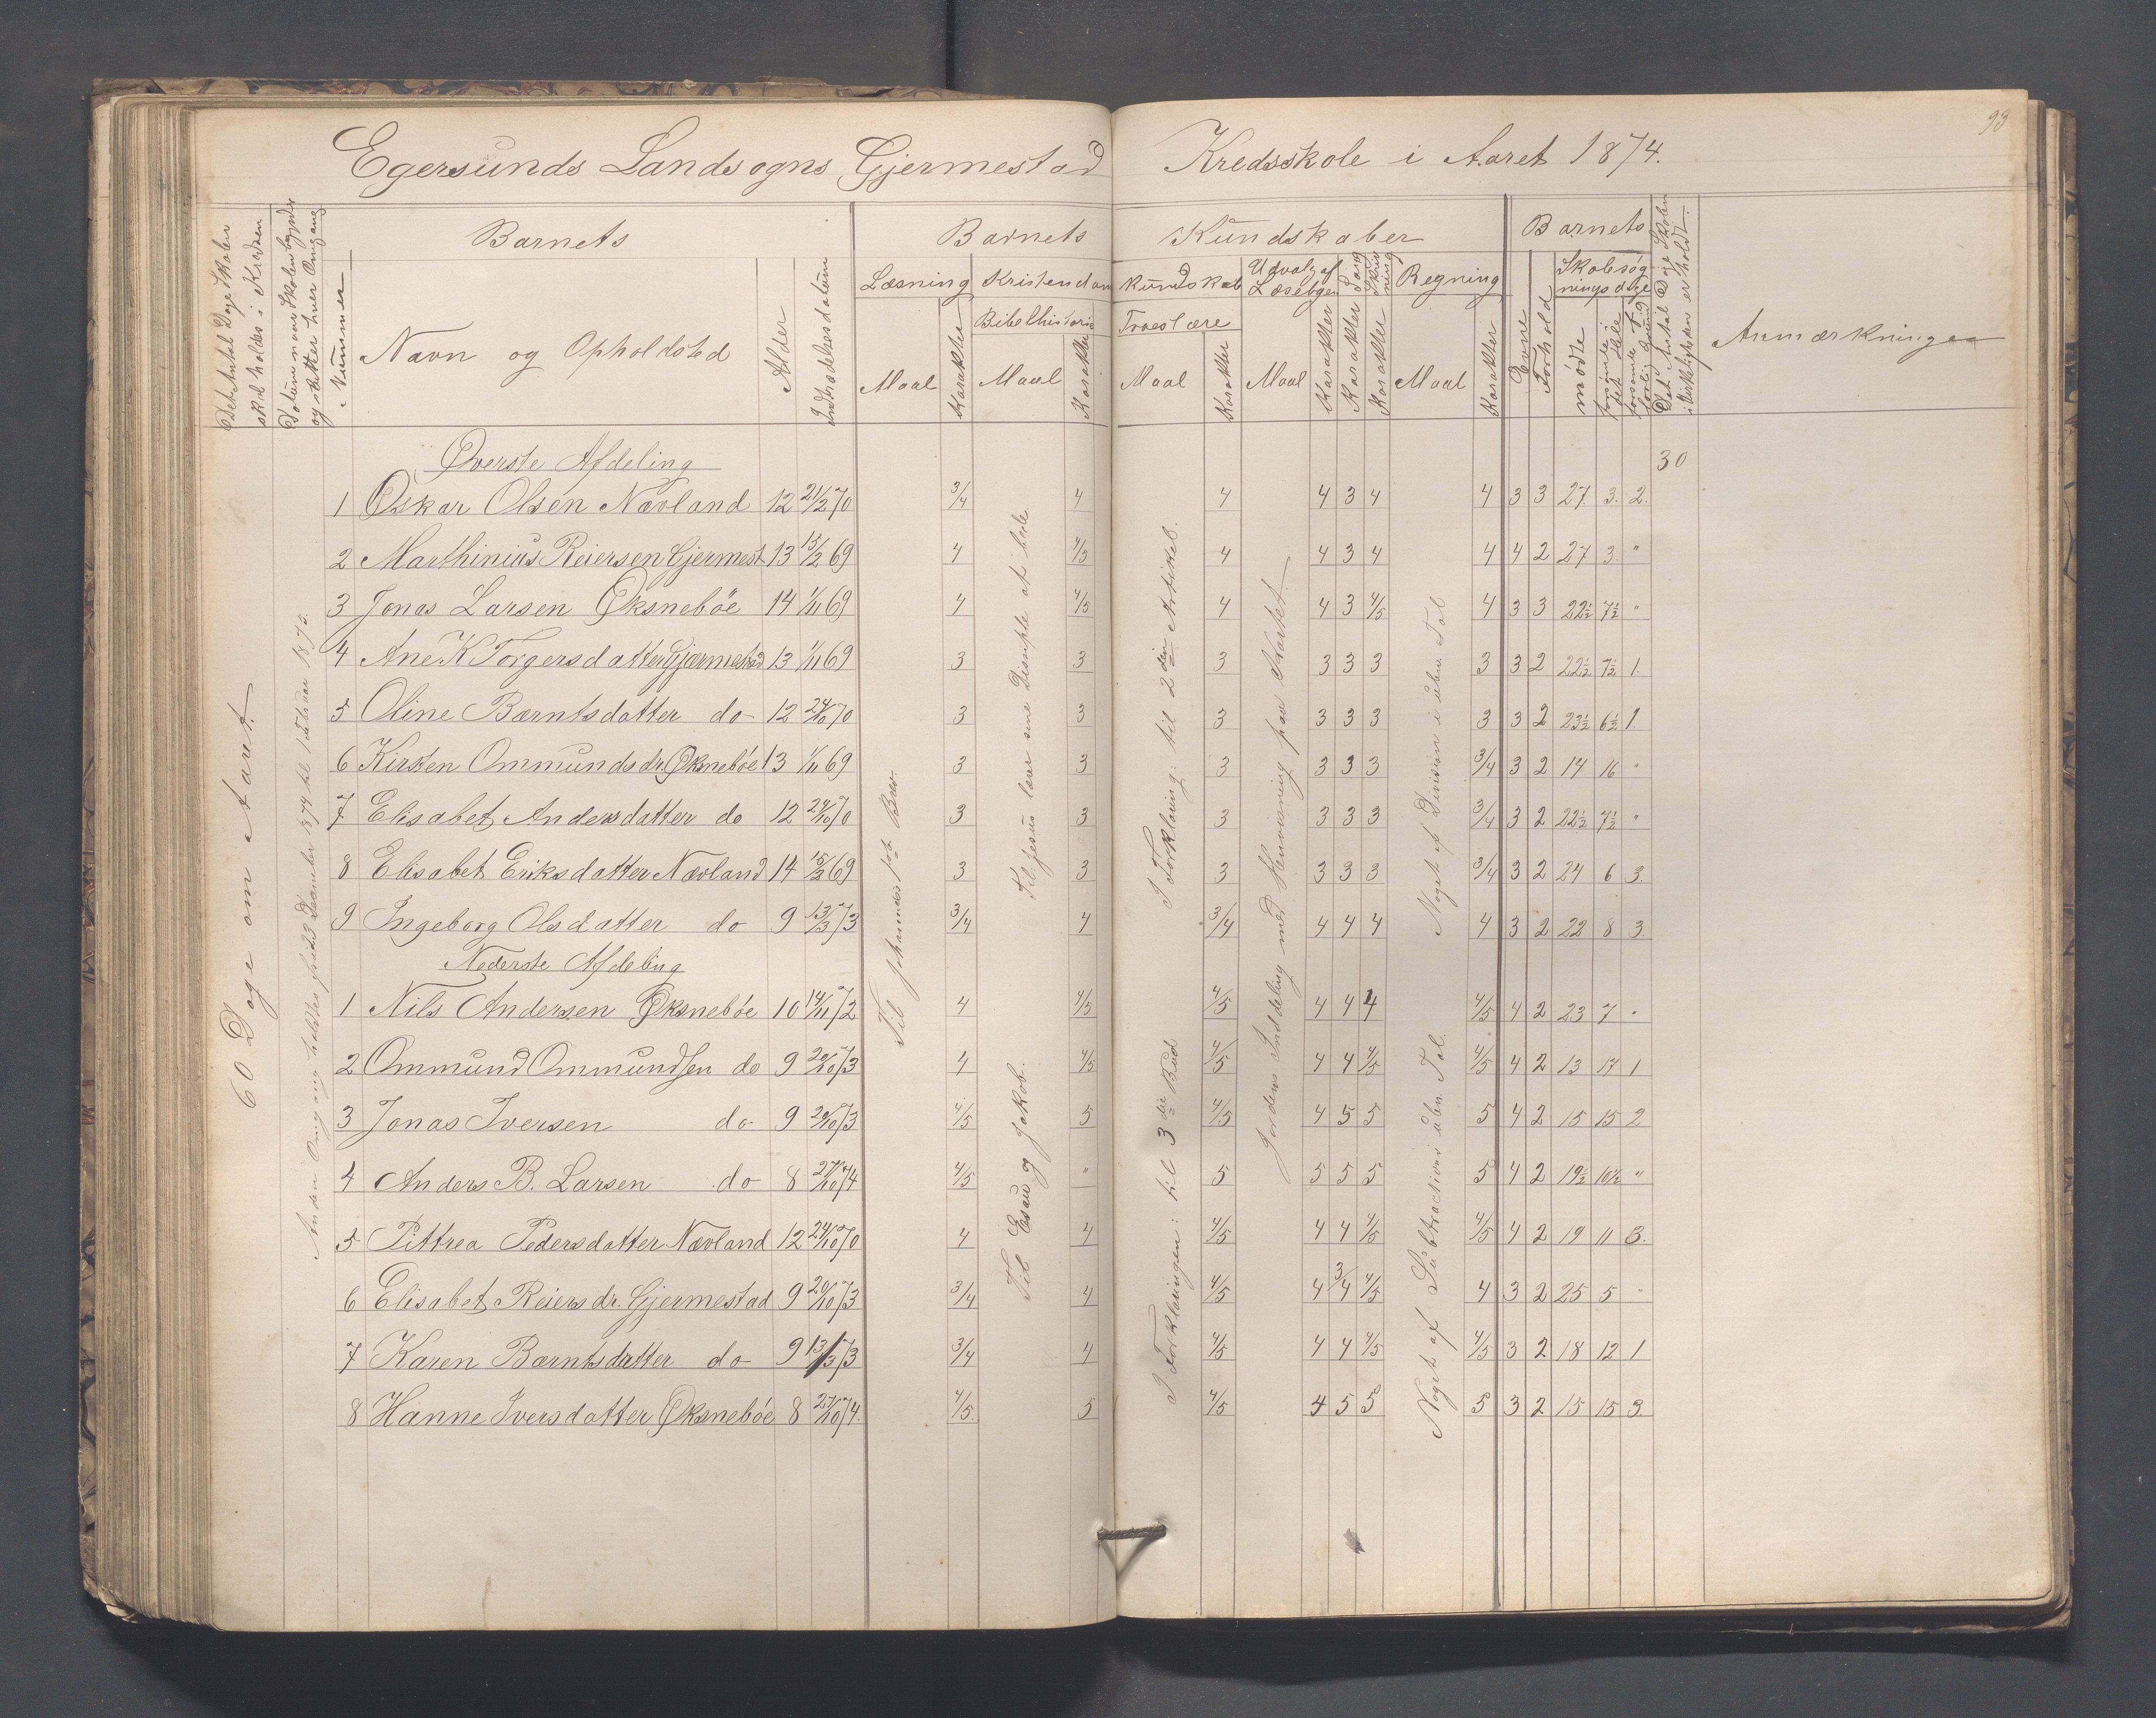 93
Egersunds Landsogns Gjermestad Kredsskole i Aaret 1874.
Det Antal Dage Skolen skal holdes i Kredsen
Datum naar Skolen begynder og slutter hver Omgang
Nummer
Barnets
Navn og Opholdsted
Alder
Indtrædelsesdatum
Barnets Kundskaber
Læsning
Maal
Karakter
Kristendom kundskab
Bibelhistorie
Maal
Karakter
Troeslære
Maal
Karakter
Udvalg af Læsebgen
Maal
Karakter
Sang
Karakter
Skrivning
Karakter
Regning
Maal
Karakter
Barnets
Evne
Forhold
Skolesøgningsdage
mødte
forsømte i det Hele
forsømte af lovlig Grund
Det Antal Dage Skolen i Virkeligheden er holdt.
Anmærkninger
60 Dage om Aaret.
Anden Omgang holdtes fra 23 December 1874 til 1 Februar 1875.
Til Johannes 1ste Brev.
Til Jesus lærer sine Disciple at bede.
Til Esau og Jakob.
I Forklaring: til 2den Artikel.
I Forklaringen: til 3die Bud
Jordens Inddeling med Henvisning paa Kartet.
Noget af Division i uben. Tal
Noget af Subtraction i uben. Tal.
Øverste Afdeling 30
1 Oskar Olsen Nævland 12 21/2 70 3/4 4 4 4 3 4 4 3 3 27. 3. 2.
2 Marthinius Reiersen Gjermest 13 15/2 69 4 4/5 4 4 3 4 4 4 2 27 3. "
3 Jonas Larsen Øksnebøe 14 1/11 69 4 4/5 4 4 3 4/5 4 3 3 22½ 7½ "
4 Ane K Torgersdatter Gjermestad 13 1/11 69 3 3 3 3 3 3 3 3 2 22½ 7½ 1.
5 Oline Bærntsdatter do 12 24/10 70 3 3 3 3 3 3 3 3 2 23½ 6½ 1.
6 Kirsten Ommundsdr. Øksnebøe 13 1/11 69 3 3 3 3 3 3 3/4 3 2 14 16 "
7 Elisabet Andersdatter do 12 24/10 70 3 3 3 3 3 3 3/4 3 2 22½ 7½ "
8 Elisabet Eriksdatter Nævland 14 15/2 69 3 3 3 3 3 3 3/4 3 2 24 6 3.
9 Ingeborg Olsdatter do 9 13/3 73 3/4 4 3/4 4 4 4 4 3 2 22 8 3.
Nederste Afdeling
1 Nils Andersen Øksnebøe 10 14/11 72 4 4/5 4/5 4 4 4 4/5 4 2 23 7 "
2 Ommund Ommundsen do 9 20/10 73 4 4/5 4/5 4 4 4/5 4/5 4 2 13 17 1
3 Jonas Iversen do 9 20/10 73 4/5 5 4/5 4 5 5 5 4 2 15 15 2
4 Anders B. Larsen do 8 27/10 74 4/5 " 5 5 5 5 5 4 2 19½ 10½ "
5 Pittrea Pedersdatter Nævland 12 24/10 70 4 4 4/5 4 4 4/5 4/5 4 2 19 11 3.
6 Elisabet Reiersdr. Gjermestad 9 20/10 73 3/4 4 4/5 4 3/4 4/5 4 3 2 25 5 "
7 Karen Bærntsdatter do 9 13/3 73 3/4 4 4/5 4 4 4/5 4/5 3 2 18 12 1
8 Hanne Iversdatter Øksnebøe 8 27/10 74. 4/5. 5 4/5 4 5 5 5 3 2 15 15 3.